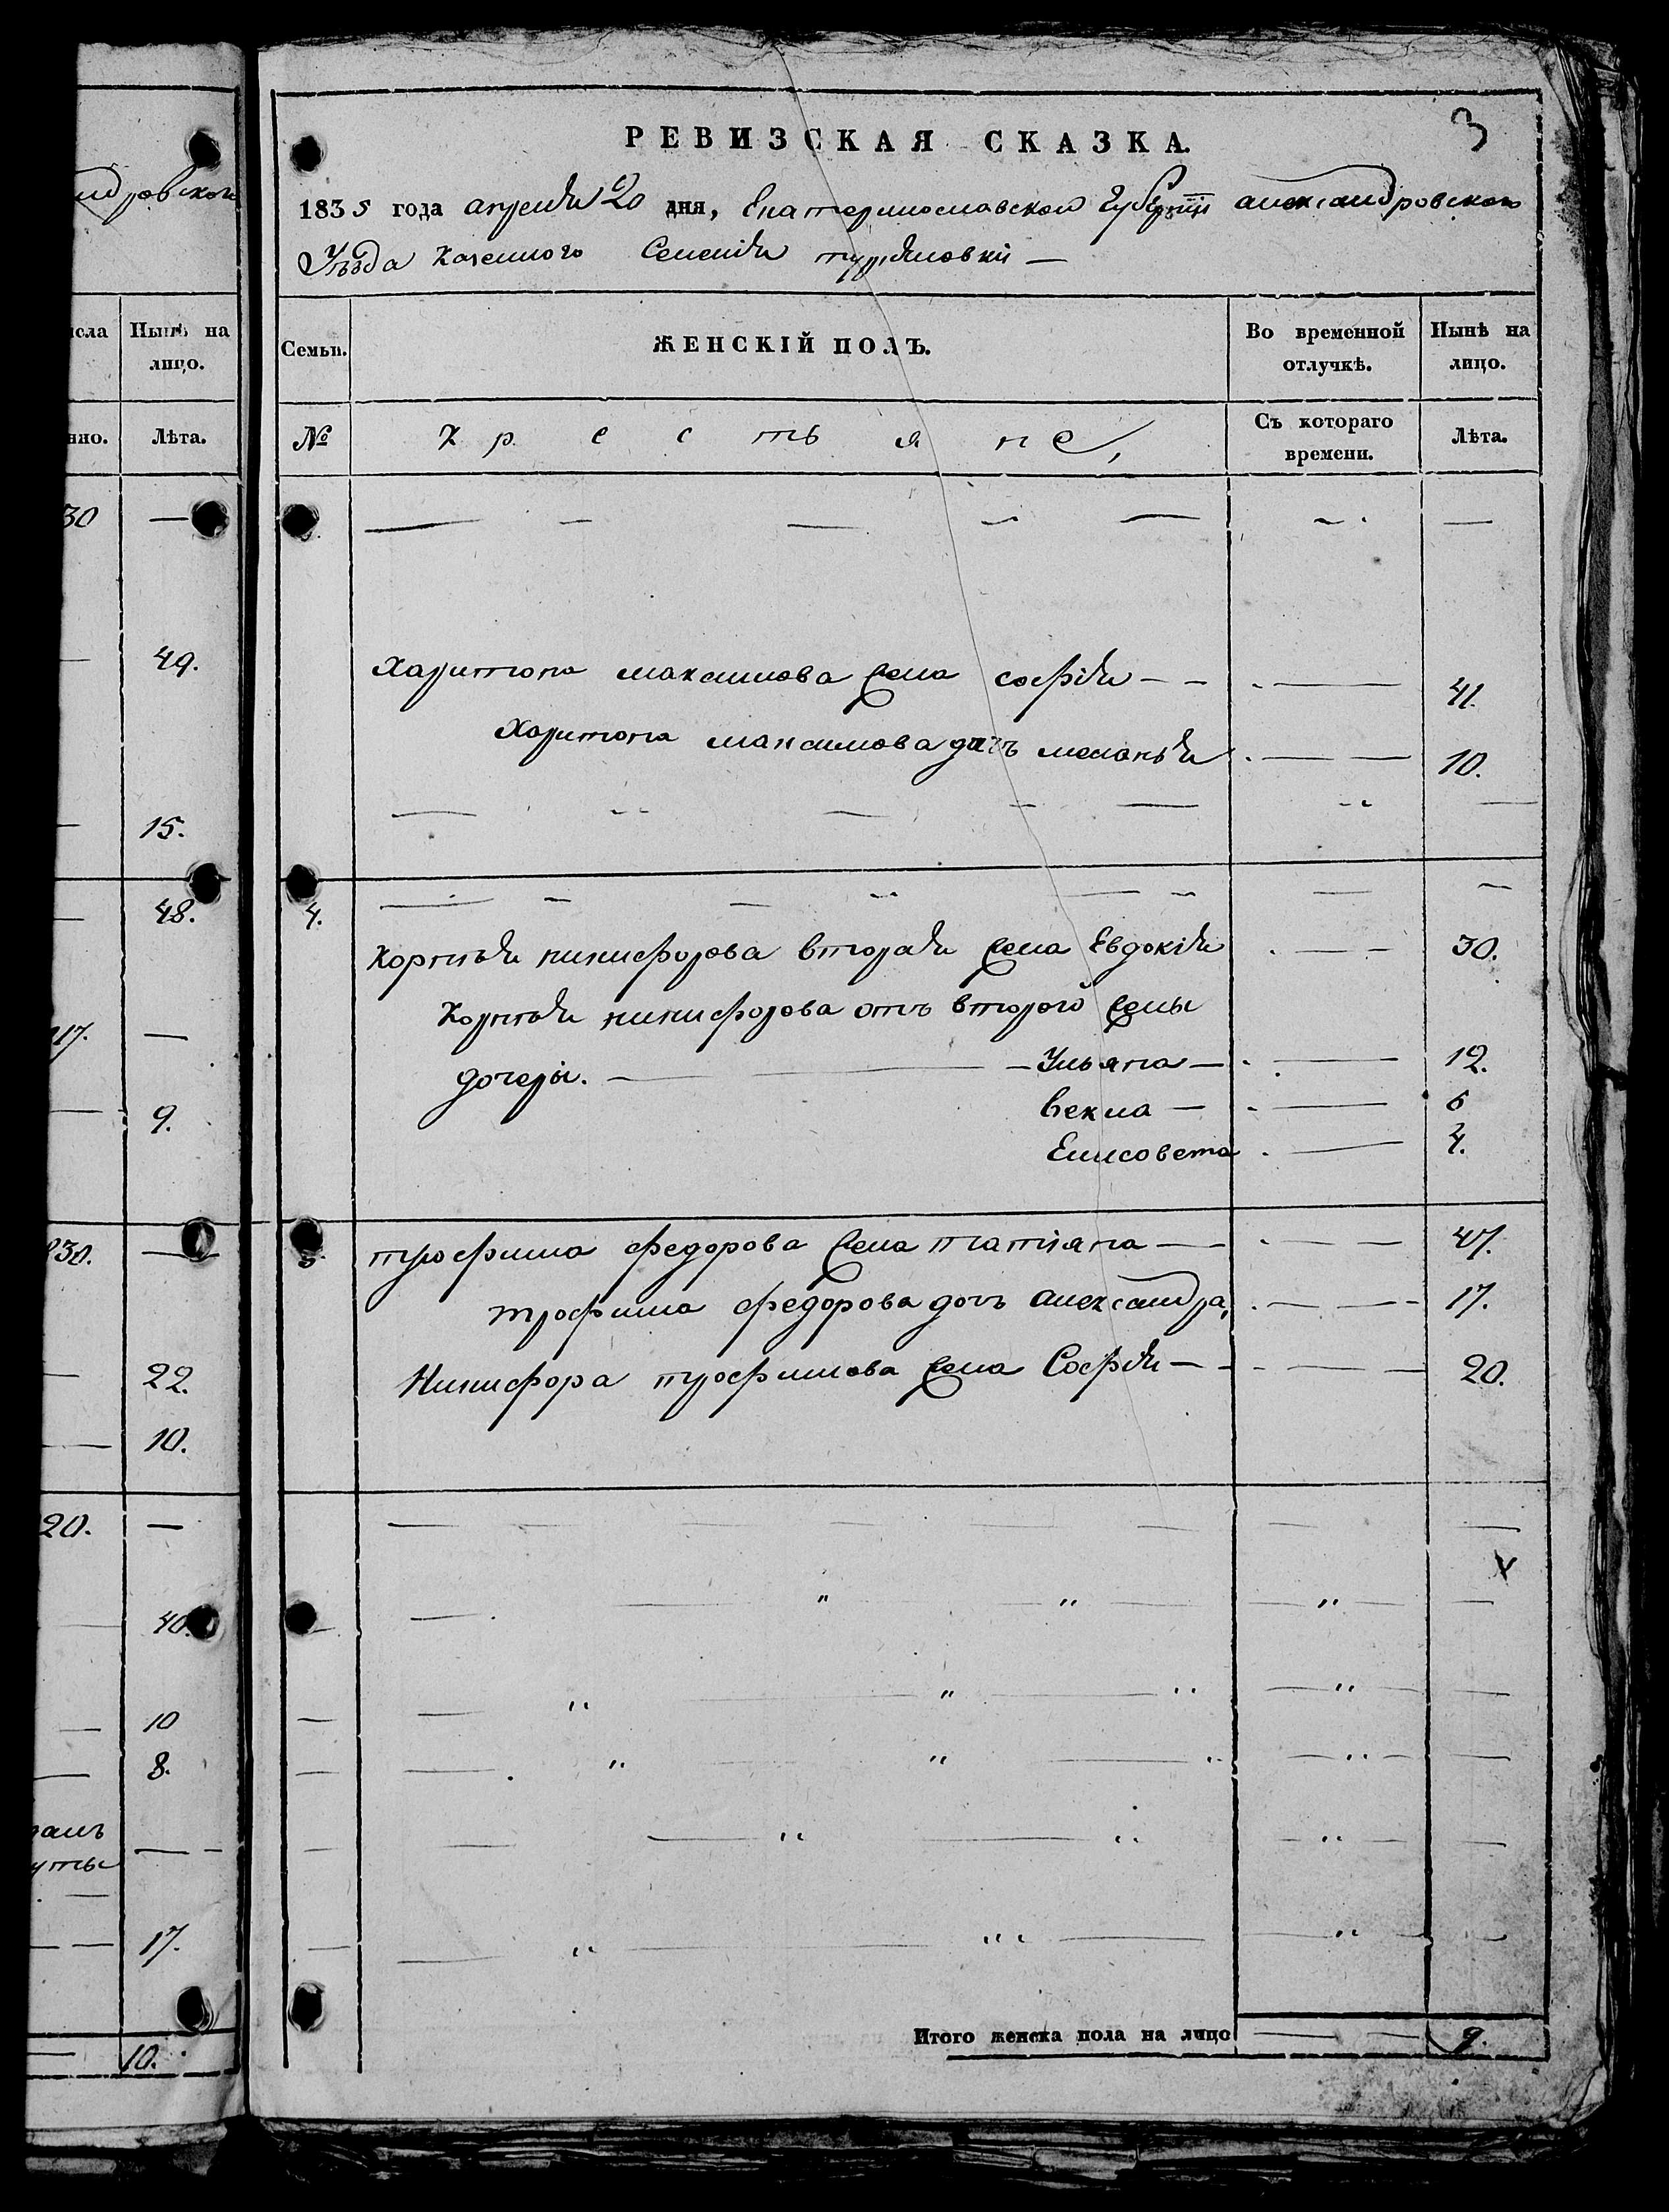 3
РЕВИЗСКАЯ СКАЗКА.
1835 года апреля 20 дня, Екатеринославской Губернии александровского
Уѣзда Казенного Селенія
ндровского
исла
Нынѣ на лицо.
нно.
Лѣта.
30 —
— 49.
15.
— 48.
17. —
— 9.
830. —
— 22.
— 10.
20. —
40.
— 10
— 8.
— 17.
— 10.
Семьи.
ЖЕНСКІЙ ПОЛЪ.
Во временной отлучкѣ.
Нынѣ на лицо.
№
Крестьяне,
Съ котораго времени.
Лѣта.
Харитона максимова жена софія — — 41.
Харитона максимова дочь меланья — 10.
4.
Корнѣя никифорова вторая жена Евдокія — 30.
Корнѣя никифорова отъ второй жены
дочери. — Ульяна — 12.
Векла — 6
Елисовета — 4.
5.
трофима федорова жена татіяна — 47.
трофима федорова дочь александра, — 17.
Никифора трофимова жена Софія — 20.
Итого женска пола на лицо — 9.